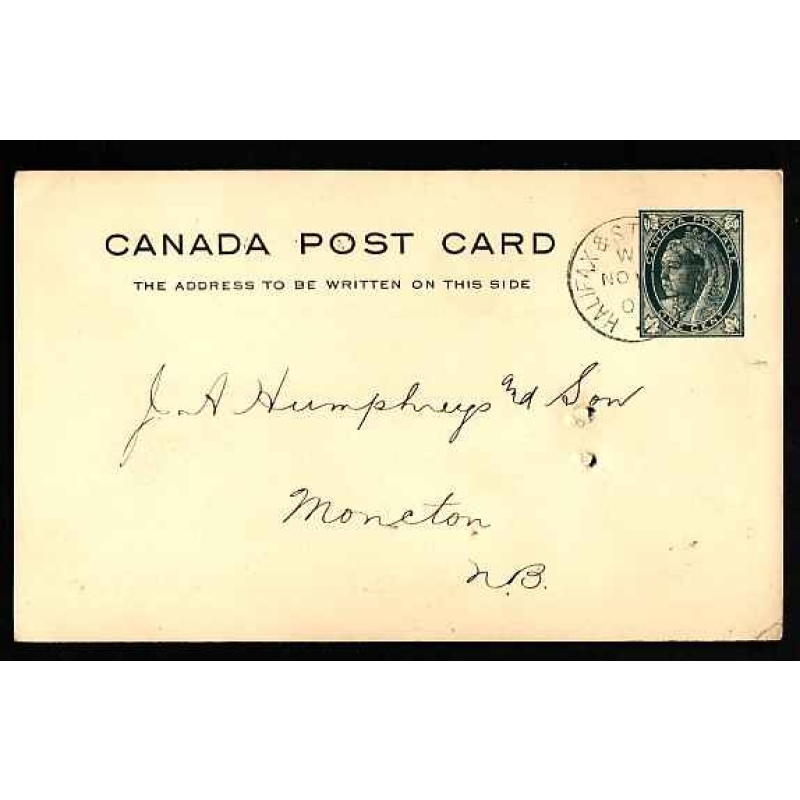 CANADA POST CARD
THE ADDRESS TO BE WRITTEN ON THIS SIDE
HALIFAX & ST
W
NO
0
CANADA POSTAGE
ONE CENT
J. A Humphreys and Son
Moncton
N.B.